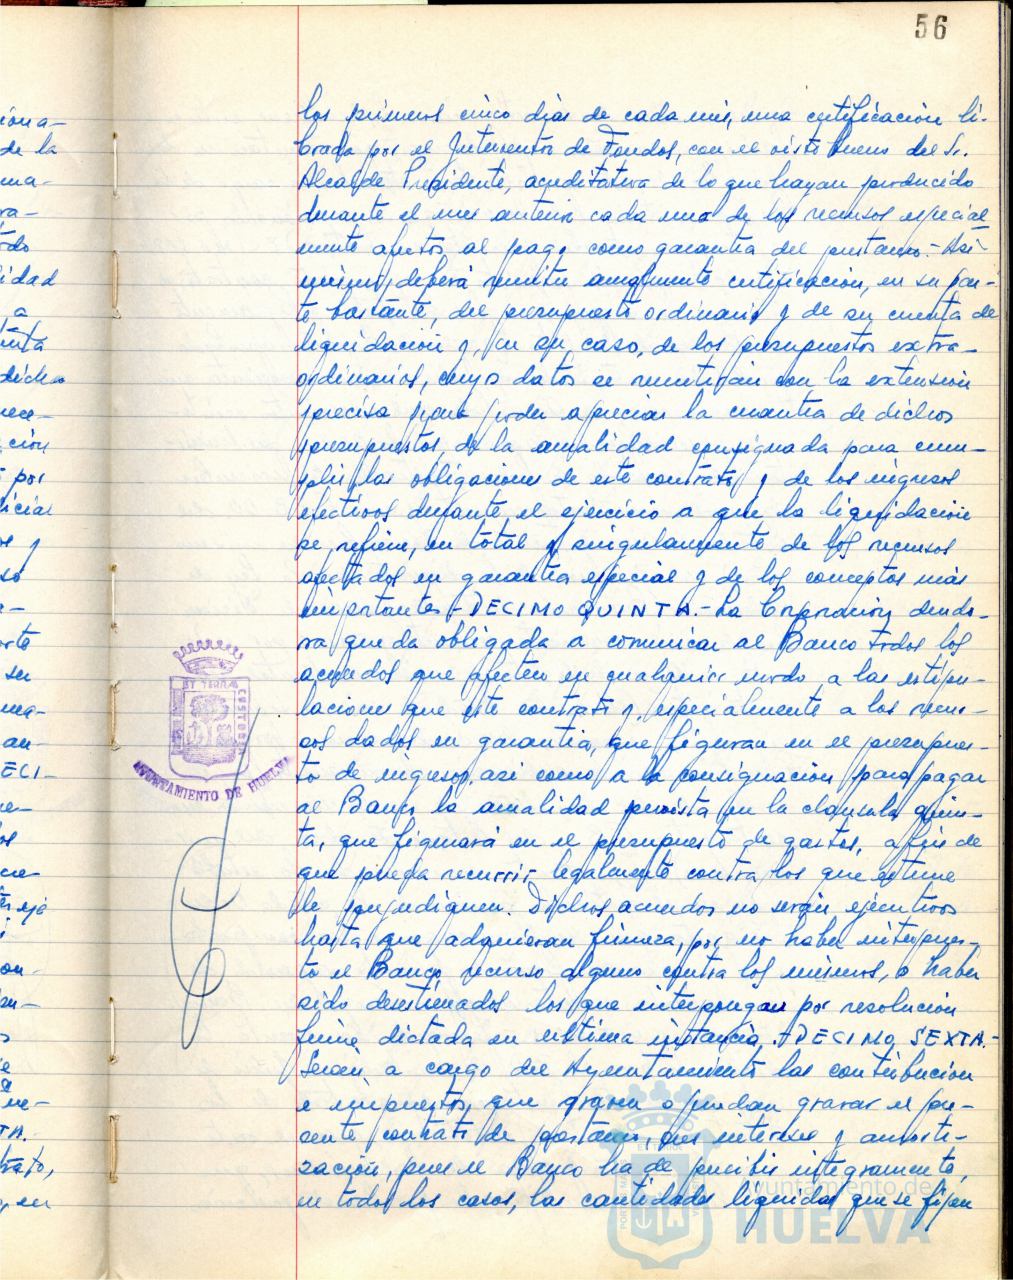 56
los primeros cinco dias de cada mes, una certificación li-
brada por el Interventor de Fondos, con el visto bueno del Sr.
Alcalde Presidente, acreditativa de lo que hayan producido
durante el mes anterior cada uno de los recursos especial
mente afectos al pago como garantia del prestamo.- Asi
mismo, deberá remitir anualmente certificación, en su par-
te bastante, del presupuesto ordinario y de su cuenta de
liquidación y, en su caso, de los presupuestos extra-
ordinarios, cuyos datos se remitirán con la extensión
precisa para poder apreciar la cuantia de dichos
presupuestos, de la anualidad consignada para cum-
plir las obligaciones de este contrato y de los ingresos
efectivos durante el ejercicio a que la liquidación
se refiere, en total y singularmente de los recursos
afectados en garantia especial y de los conceptos más
importantes.- DECIMO QUINTA.- La Corporación deudo-
ra queda obligada a comunicar al Banco todos los
acuerdos que afecten en cualquier modo a las estipu-
laciones que este contrato y, especialmente a los recur-
sos dados en garantia, que figuran en el presupues-
to de ingresos, asi como, a la consignación para pagar
al Banco la anualidad prevista en la clausula quin-
ta, que figurará en el presupuesto de gastos, a fin de
que pueda recurrir legalmente contra los que estime
le perjudiquen. Dichos acuerdos no serán ejecutivos
hasta que adquieran firmeza, por no haber interpues-
to el Banco recurso alguno contra los mismos, o haber
sido desestimados los que interpongan por resolución
firme dictada en ultima instancia.- DECIMO SEXTA.-
Serán a cargo del Ayuntamiento las contribución
e impuestos, que graven o puedan gravar el pre-
sente contrato de prestamo, sus intereses y amorti-
zación, pues el Banco ha de percibir integramente,
en todos los casos, las cantidades liquidas que se fijan
AYUNTAMIENTO DE HUELVA
Ayuntamiento de
HUELVA